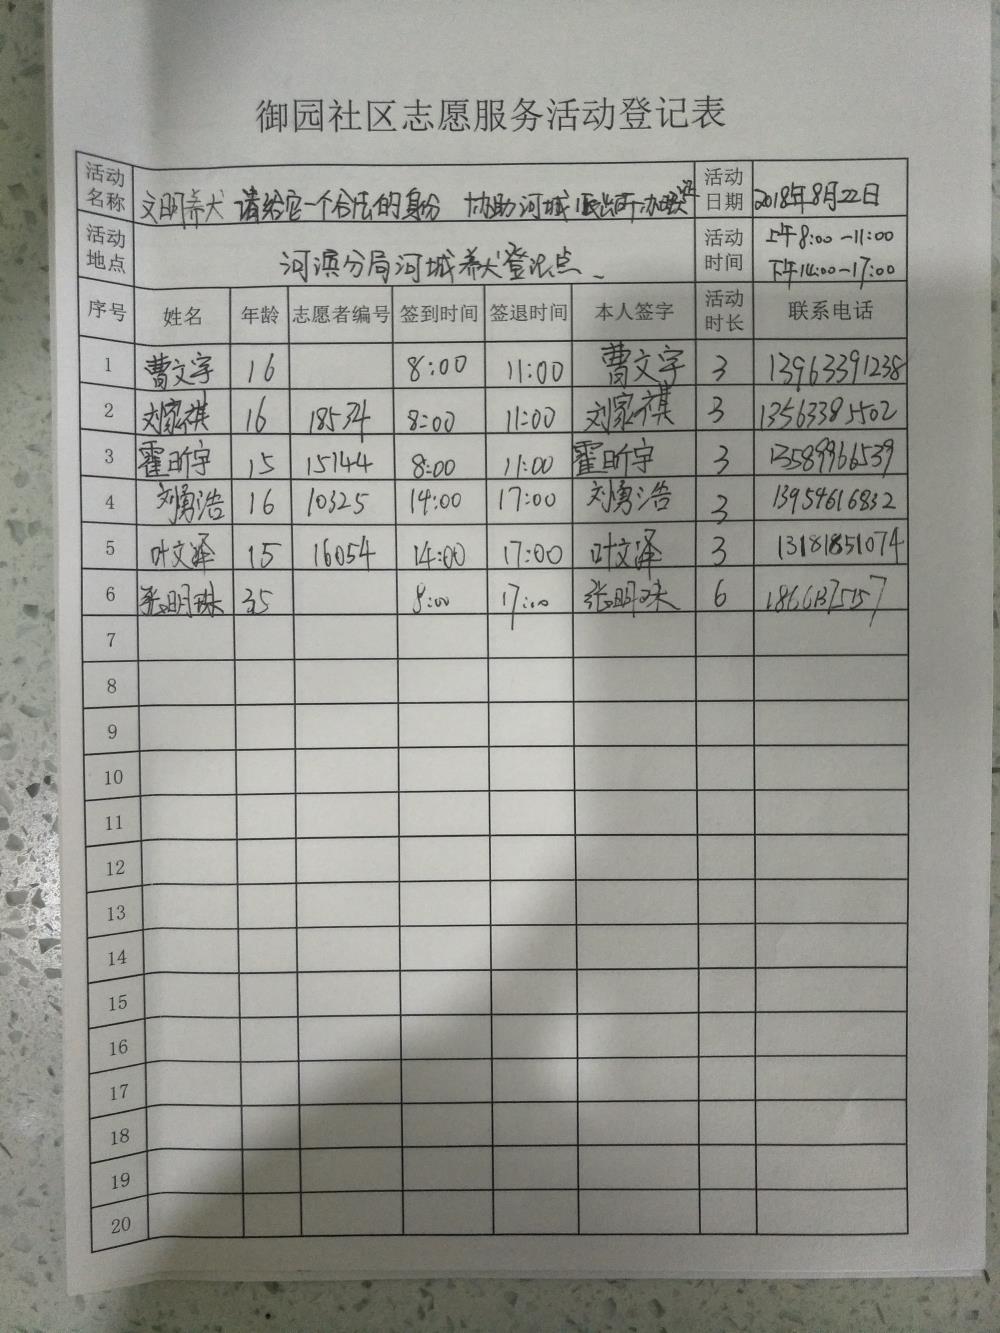 御园社区志愿服务活动登记表
活动名称 文明养犬 请给它一个合法的身份 协助河城派出所办理 活动日期 2018年8月22日
活动地点 河滨分局河城养犬登记点、 活动时间 上午8:00-11:00 下午14:00-17:00
序号 姓名 年龄 志愿者编号 签到时间 签退时间 本人签字 活动时长 联系电话
1 曹文宇 16 8:00 11:00 曹文宇 3 13963391238
2 刘家祺 16 18534 8:00 11:00 刘家祺 3 13563385502
3 霍昕宇 15 15144 8:00 11:00 霍昕宇 3 13589966539
4 刘勇浩 16 10325 14:00 17:00 刘勇浩 3 13954616832
5 叶文泽 15 16054 14:00 17:00 叶文泽 3 13181851074
6 张明珠 35 8:00 17:00 张明珠 6
7
8
9
10
11
12
13
14
15
16
17
18
19
20